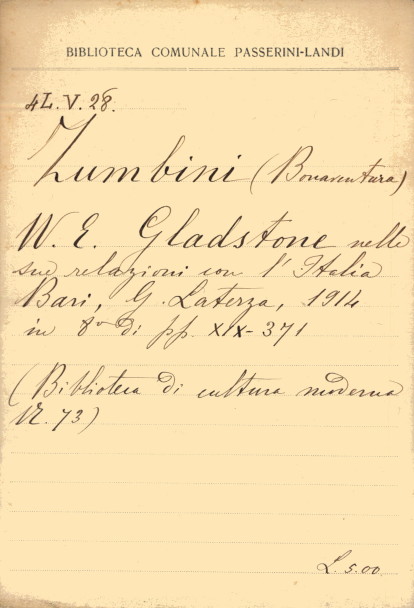 BIBLIOTECA COMUNALE PASSERINI-LANDI
4L.V.28.
Zumbini (Bonaventura)
W. E. Gladstone nelle
sue relazioni con l'Italia
Bari, G. Laterza, 1914
in 8º di pp. XIX-371
(Biblioteca di cultura moderna
N. 73)
L. 5.00